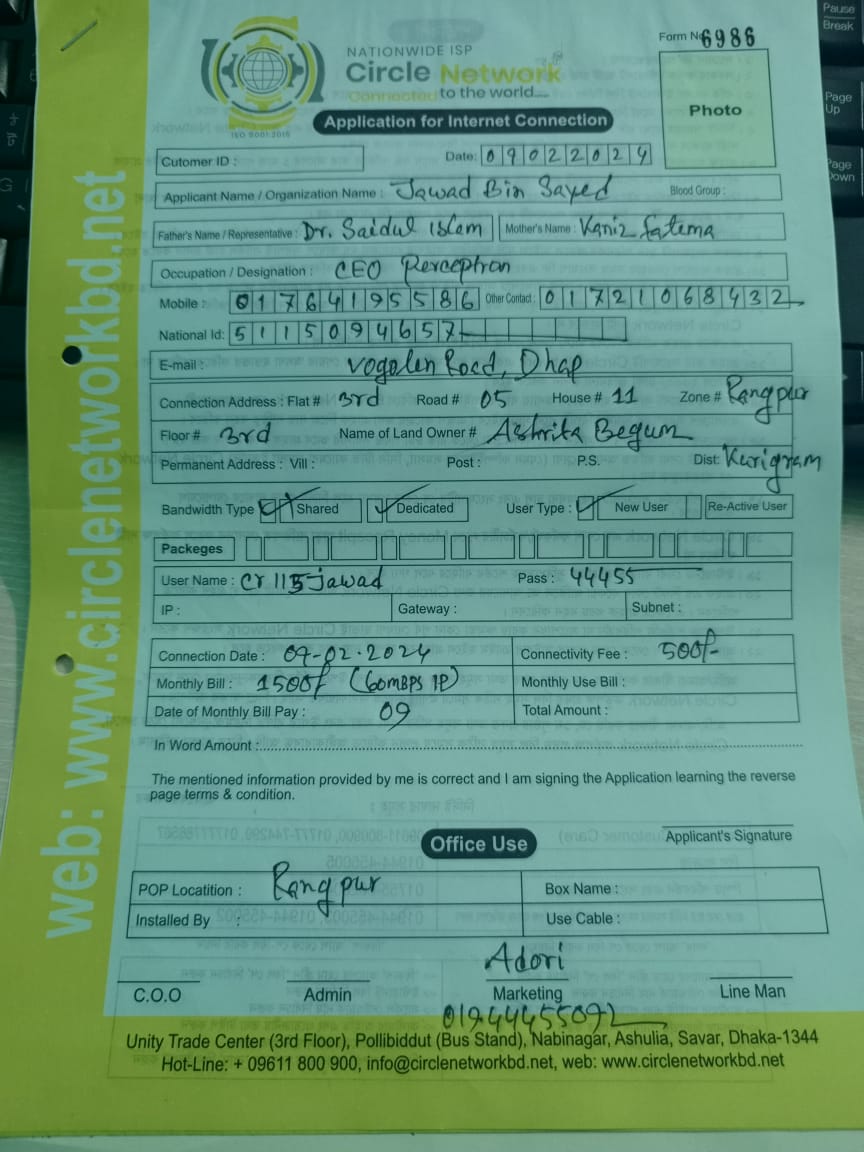 Pause
Break
Page
Up
Page
Down
NATIONWIDE ISP
Circle Network
Connected to the world....
ISO 9001:2015
Form No 6986
Photo
Application for Internet Connection
Cutomer ID :
Date: 09022024
Applicant Name / Organization Name : Jawad Bin Sayed Blood Group :
Father's Name / Representative : Dr. Saidul islam Mother's Name : Kaniz fatema
Occupation / Designation : CEO Perceptron
Mobile : 01764195586 Other Contact : 01721068432
National Id: 5115094657
E-mail : vogolen Road, Dhap
Connection Address : Flat # 3rd Road # 05 House # 11 Zone # Rangpur
Floor # 3rd Name of Land Owner # Ashrita Begum
Permanent Address : Vill : Post : P.S. Dist: Kurigram
Bandwidth Type Shared Dedicated User Type : New User Re-Active User
Packeges
User Name : Cr 115 jawad Pass : 44455
IP : Gateway : Subnet :
Connection Date : 09-02-2024 Connectivity Fee : 500/-
Monthly Bill : 1500/ (60MBPS IP) Monthly Use Bill :
Date of Monthly Bill Pay : 09 Total Amount :
In Word Amount :
The mentioned information provided by me is correct and I am signing the Application learning the reverse
page terms & condition.
Applicant's Signature
Office Use
POP Locatition : Rangpur Box Name :
Installed By : Use Cable :
Adori
C.O.O Admin Marketing Line Man
01944455092
Unity Trade Center (3rd Floor), Pollibiddut (Bus Stand), Nabinagar, Ashulia, Savar, Dhaka-1344
Hot-Line: + 09611 800 900, info@circlenetworkbd.net, web: www.circlenetworkbd.net
web: www.circlenetworkbd.net